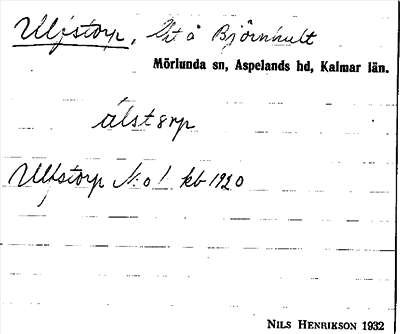 Ulfstorp, lht å Björnhult
Mörlunda sn, Aspelands hd, Kalmar län.
ålstørp
Ulfstorp No 1 kb 1920
NILS HENRIKSON 1932